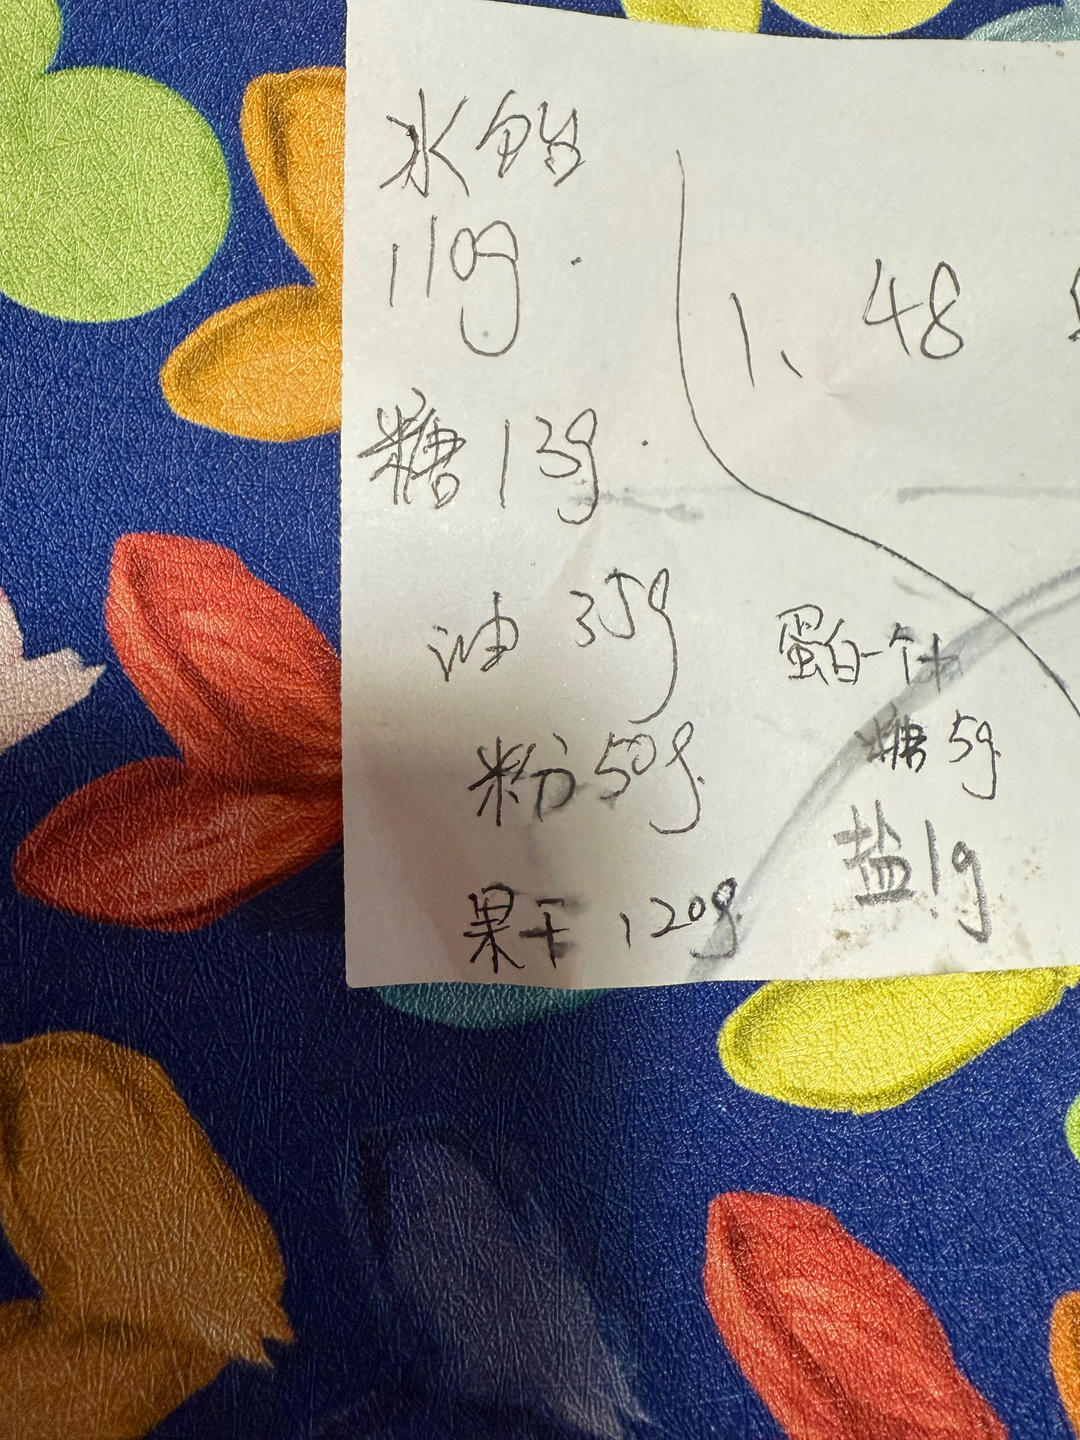 水飴
110g
糖 13g
油 35g
粉 50g
果干 120g
1、 48
蛋白一个
糖 5g
盐 1g